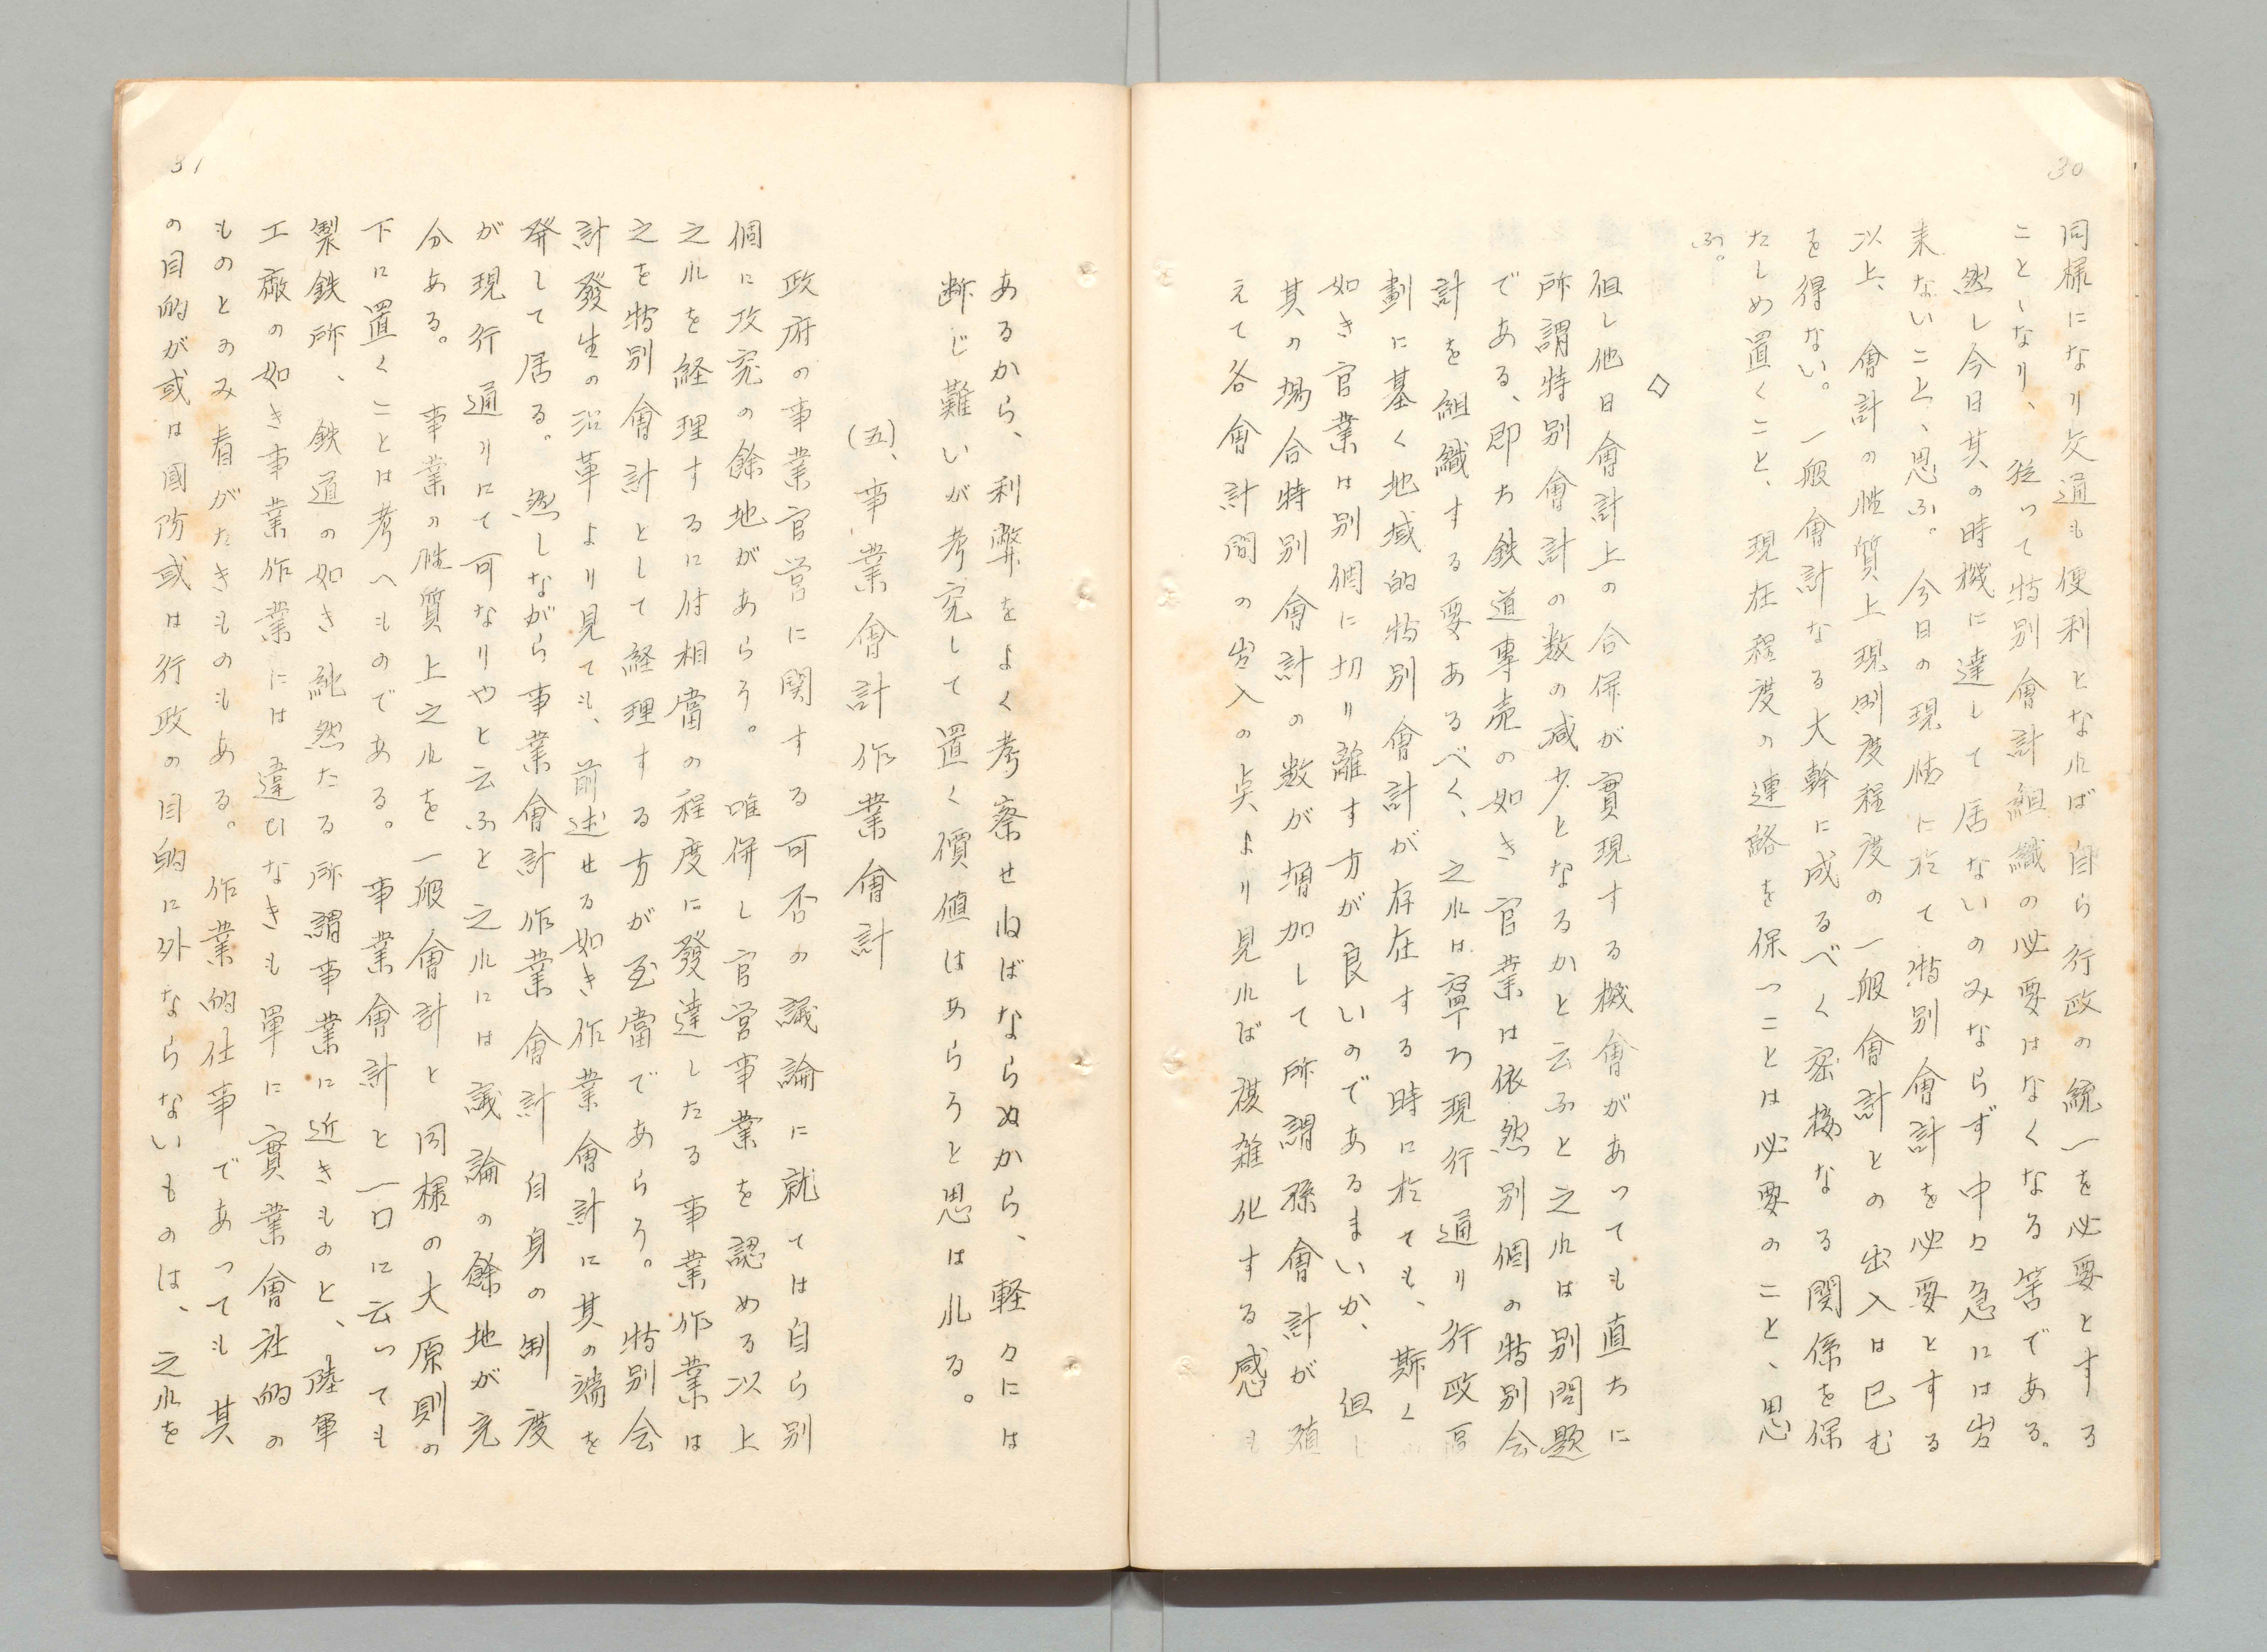 30
同様になり交通も便利となれば自ら行政の統一を必要とする
ことゝなり、従って特別會計組織の必要はなくなる筈である。
然し今日其の時機に達して居ないのみならず中々急には出
来ないことゝ思ふ。今日の現情に於て特別會計を必要とする
以上、會計の性質上現制度程度の一般會計との出入は已む
を得ない。一般會計なる大幹に成るべく密接なる関係を保
たしめ置くこと、現在程度の連絡を保つことは必要のことゝ思
ふ。
◇
但し他日會計上の合併が實現する機會があっても直ちに
所謂特別會計の数の減少となるかと云ふと之れは別問題
である、即ち鉄道專売の如き官業は依然別個の特別会
計を組織する要あるべく、之れは寧ろ現行通り行政區
劃に基く地域的特別會計が存在する時に於ても、斯く
如き官業は別個に切り離す方が良いのであるまいか、但し
其の場合特別會計の数が増加して所謂孫會計が殖
えて各會計間の出入の点より見れば複雑化する感も
31
あるから、利弊をよく考察せねばならぬから、軽々には
断じ難いが考究して置く價値はあらうと思はれる。
(五)、事業會計作業會計
政府の事業官営に関する可否の議論に就ては自ら別
個に攻究の餘地があらう。唯併し官営事業を認める以上
之れを経理するに付相當の程度に發達したる事業作業は
之を特別會計として経理する方が至當であらう。特別会
計發生の沿革より見ても、前述せる如き作業會計に其の端を
発して居る。然しながら事業會計作業會計自身の制度
が現行通りにて可なりやと云ふと之れには議論の餘地が充
分ある。事業の性質上之れを一般會計と同様の大原則の
下に置くことは考へものである。事業會計と一口に云っても
製鉄所、鉄道の如き純然たる所謂事業に近きものと、陸軍
工廠の如き事業作業には違ひなきも單に實業會社的の
ものとのみ看がたきものもある。作業的仕事であっても其
の目的が或は國防或は行政の目的に外ならないものは、之れを